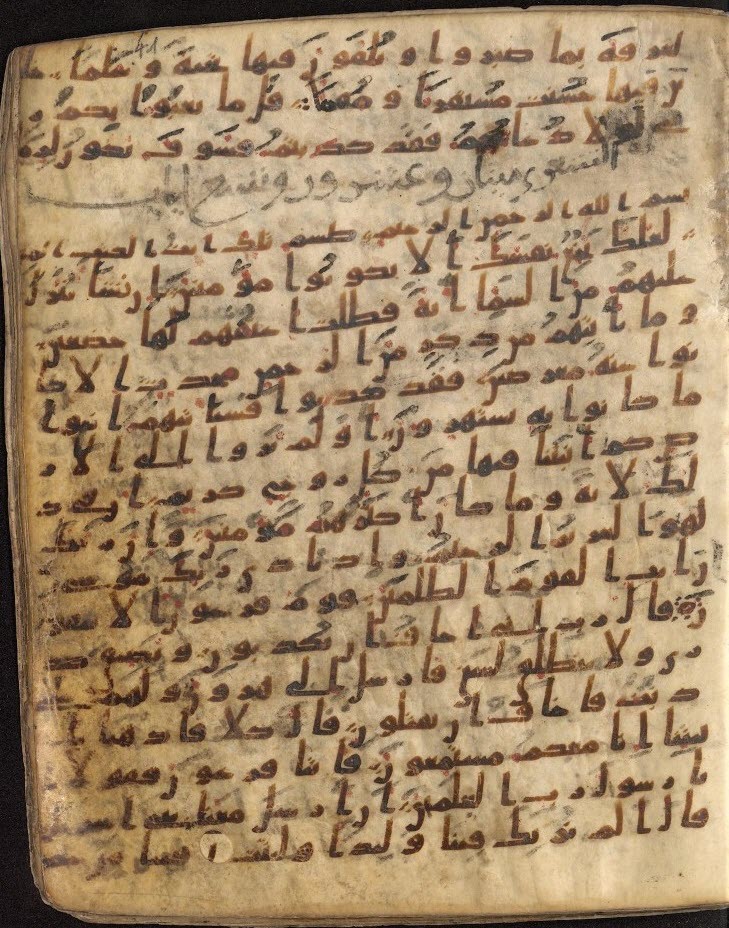 41
لغرفة بما صبروا و يلقون فيها تحية و سلما خلد
ين فيها حسنت مستقرا و مقاما قل ما يعبوا بكم ر
بي لولا دعاوكم فقد كذبتم فسوف يكون لزاما
وعشرون وتسع ايات
بسم الله الرحمن الرحيم طسم تلك ايت الكتب المبـ
ين لعلك بخع نفسك الا يكونوا مومنين ان نشا ننزل
عليهم من السما اية فظلت اعنقهم لها خضعين
و ما ياتيهم من ذكر من الرحمن محدث الا كا
نوا عنه معرضين فقد كذبوا فسياتيهم انبوا
ما كانوا به يستهزون او لم يروا الى الار
ض كم انبتنا فيها من كل زوج كريم ان في ذ
لك لاية و ما كان اكثرهم مومنين و ان ربك
لهو العزيز الرحيم و اذ نادى ربك موسى
ان ايت القوم الظلمين قوم فرعون الا يتقو
ن قال رب اني اخاف ان يكذبون و يضيق صد
ري و لا ينطلق لسني فارسل الى هرون و لهم على
ذنب فاخاف ان يقتلون قال كلا فاذهبا با
يتنا انا معكم مستمعون فاتيا فرعون فقولا ا
نا رسول رب العلمين ان ارسل معنا بني اسريل
قال الم نربك فينا وليدا و لبثت فينا من عمر